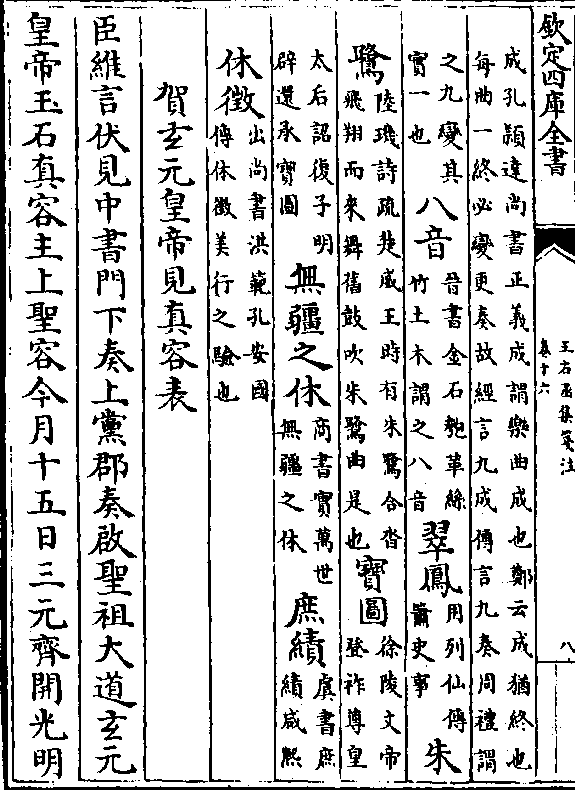 欽定四庫全書
王右丞集箋注
卷十六
八
成孔穎達尚書正義成謂樂曲成也鄭云成猶終也
每曲一終必變更奏故經言九成傳言九奏周禮謂
之九變其
實一也
八音
晉書金石匏革絲
竹土木謂之八音
翠鳳
用列仙傳
蕭史事
朱
鷺
陸璣詩疏楚威王時有朱鷺合沓
飛翔而來舞舊鼓吹朱鷺曲是也
寶圖
徐陵文帝
登祚尊皇
太后詔復子明
辟還承寶圖
無疆之休
商書實萬世
無疆之休
庶績
虞書庶
績咸熙
休徵
出尚書洪範孔安國
傳休徵美行之驗也
賀玄元皇帝見真容表
臣維言伏見中書門下奏上黨郡奏啟聖祖大道玄元
皇帝玉石真容主上聖容今月十五日三元齊開光明